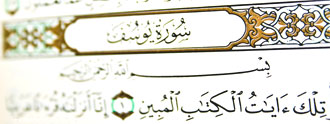 سُورَةُ يُوسُفَ
بِسْمِ ٱللَّهِ ٱلرَّحْمَٰنِ ٱلرَّحِيمِ
تِلْكَ ءَايَٰتُ ٱلْكِتَٰبِ ٱلْمُبِينِ ١ إِنَّآ أَنزَلْنَٰهُ قُرْءَٰنًا عَرَبِيًّا